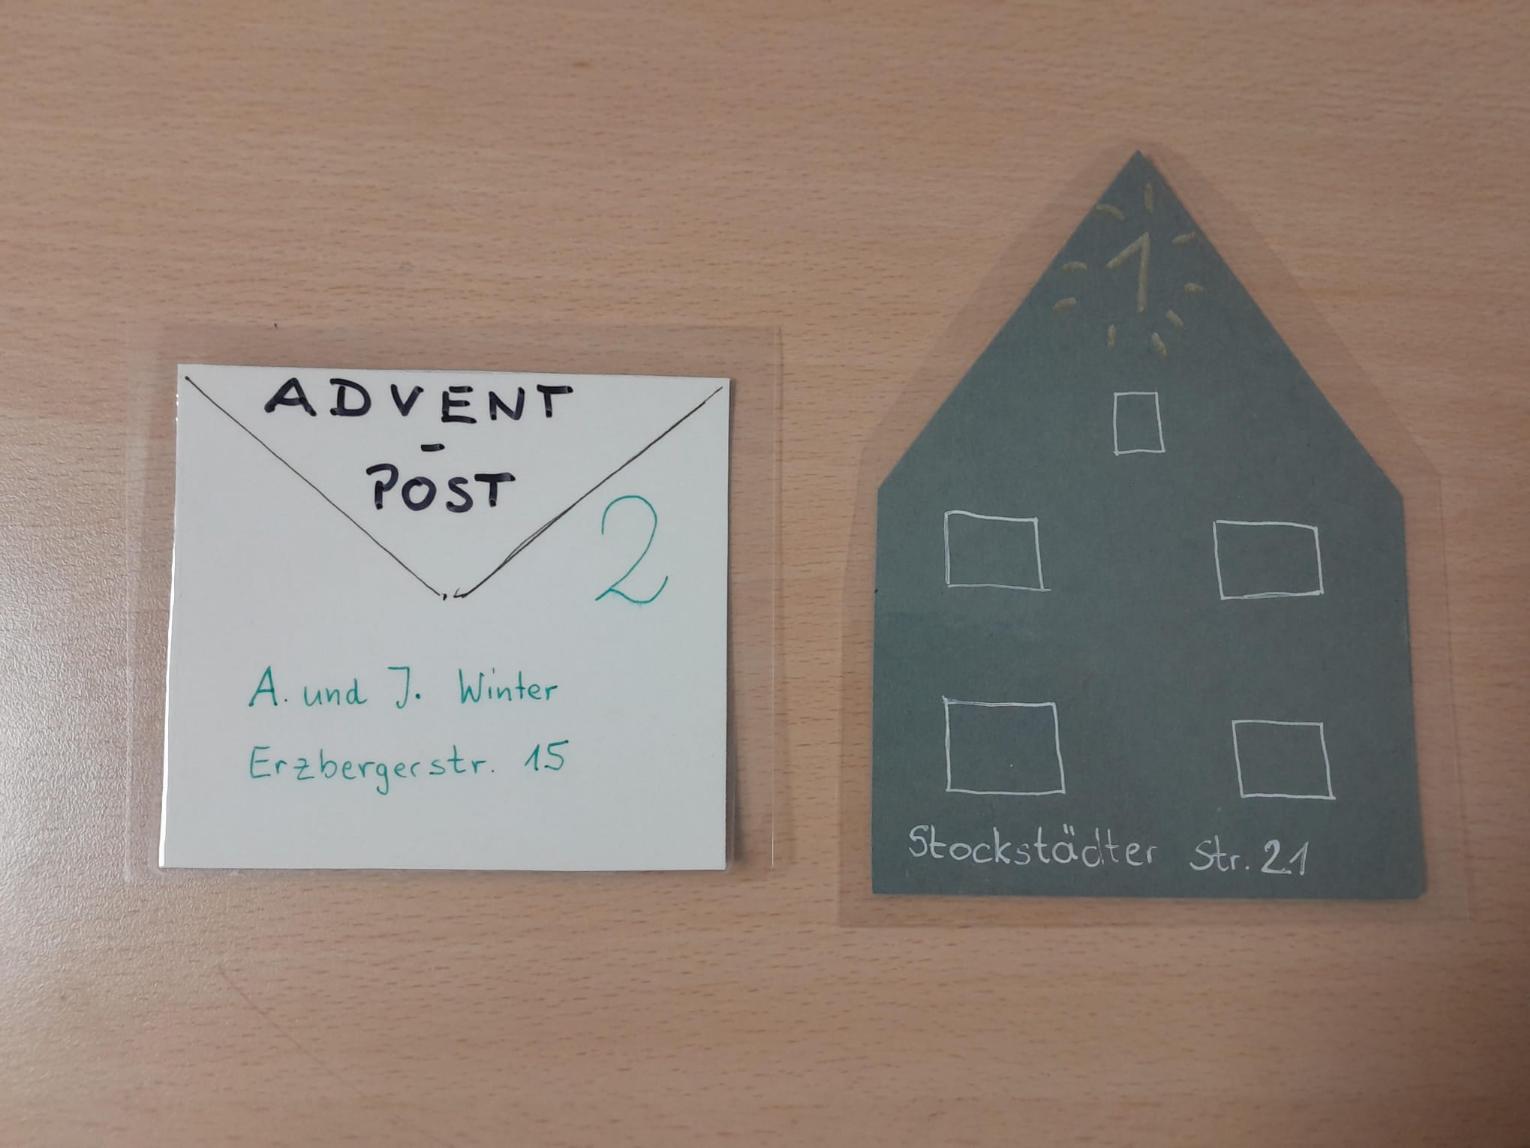 ADVENT
-
POST
2
A. und J. Winter
Erzbergerstr. 15
1
Stockstädter Str. 21